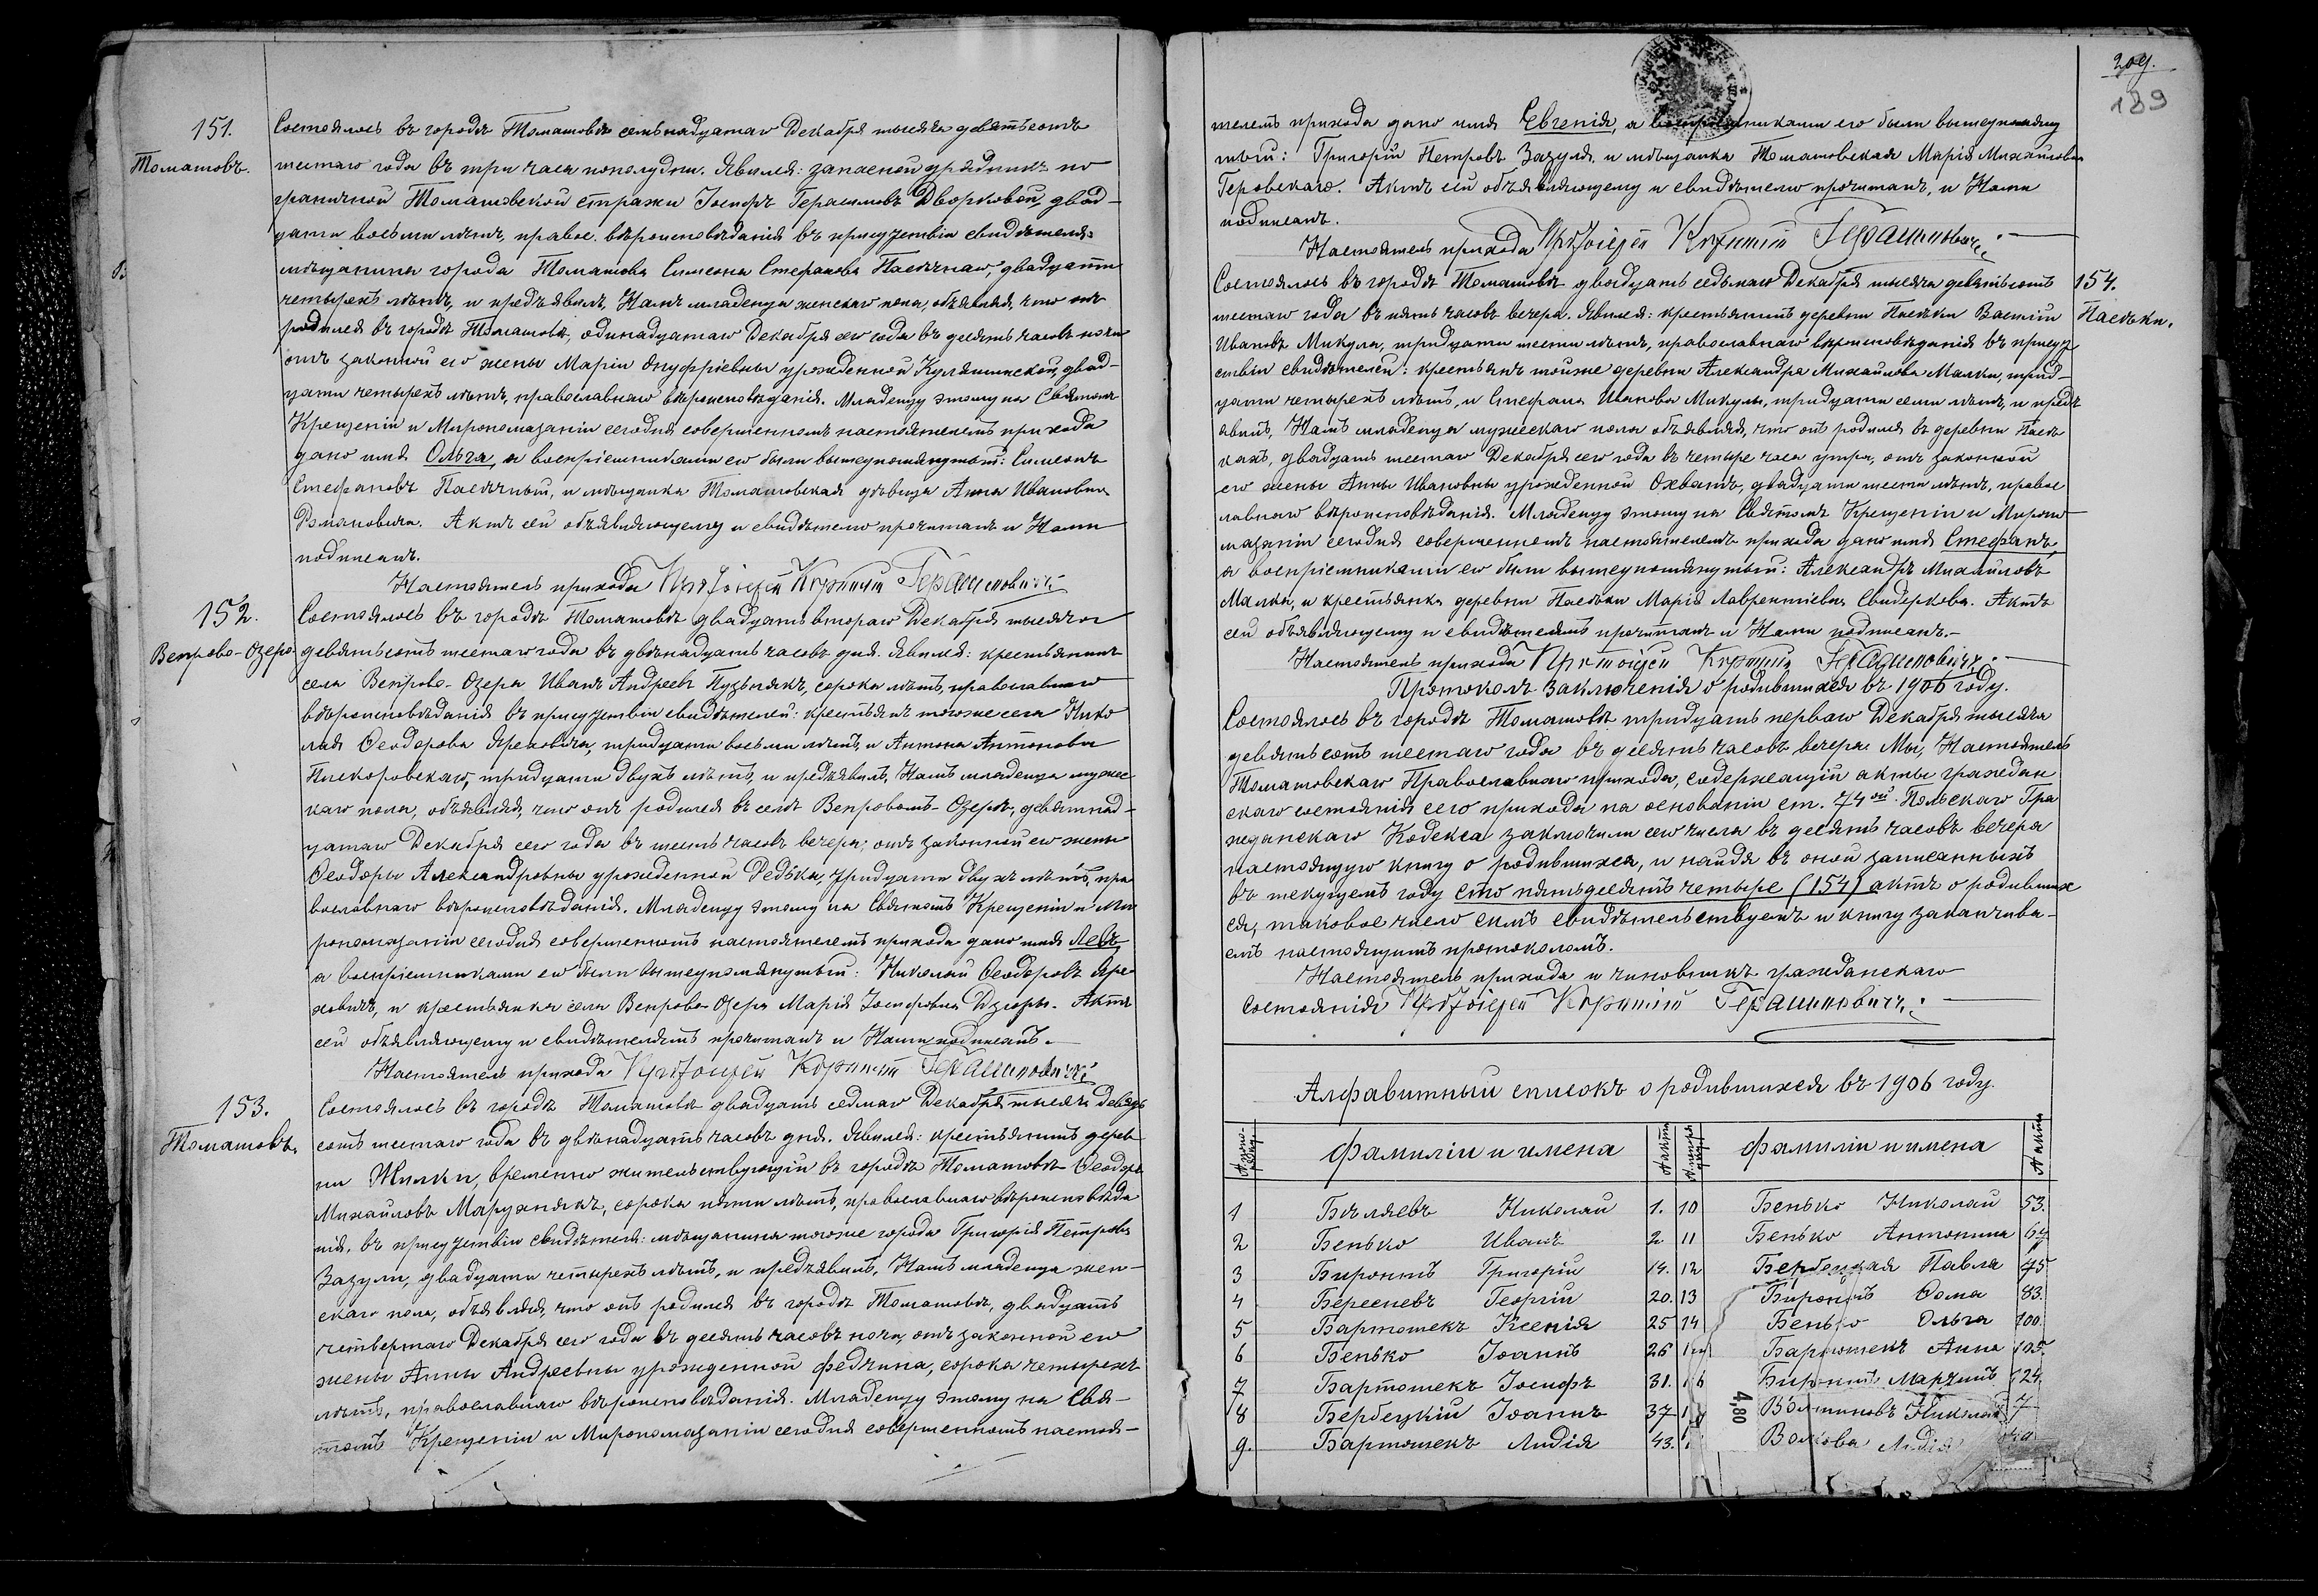 151.
Томашовъ.
Состоялось въ городѣ Томашовѣ семьнадцатаго Декабря тысяча девятьсотъ
шестаго года въ три часа пополудни. Явился: запасной урядникъ по
граничной Томашовской стражи Іосифъ Герасимовъ Дворковой, двад-
цати восьми лѣтъ, правос. вѣроисповѣданія въ присутствіи свидѣтеля:
мѣщанина города Томашова Симеона Стефанова Пасѣчнаго, двадцати
четырехъ лѣтъ, и предъявилъ Намъ младенца женскаго пола, объявляя, что онъ
родился въ городѣ Томашовѣ, одинадцатаго Декабря сего года въ десять часовъ ночи
отъ законной его жены Маріи Онуфріевны урожденной двад-
цати четырехъ лѣтъ, православнаго вѣроисповѣданія. Младенцу этому на Святомъ
Крещеніи и Миропомазаніи сегодня совершенномъ настоятелемъ прихода
дано имя Ольга, а воспріемниками его были вышеупомянутый: Симеонъ
Стефановъ Пасѣчный, и мѣщанка Томашовская дѣвица Анна Ивановна
Романовича. Актъ сей объявляющему и свидѣтелю прочитанъ и Нами
подписанъ.
Настоятель прихода Протоіерей Корнилій Герашиновичъ
152.
Венрово-Озеро
Состоялось въ городѣ Томашовѣ двадцать втораго Декабря тысяча
девятьсотъ шестаго года въ двѣнадцать часовъ дня. Явился: крестьянинъ
села Венрово-Озера Иванъ Андреевъ Пузнякъ, сорока лѣтъ, православнаго
вѣроисповѣданія въ присутствіи свидѣтелей: крестьянъ тогоже села Нико
лая Ѳеодорова Яреховича, тридцати восьми лѣтъ, и Антона Антонова
Пискоровскаго, тридцати двухъ лѣтъ, и предъявилъ Намъ младенца мужес
каго пола, объявляя, что онъ родился въ селѣ Венровомъ-Озерѣ, девятнад-
цатаго Декабря сего года въ шесть часовъ вечера, отъ законной его жены
Ѳеодоры Александровны урожденной Дедька, тридцати двухъ лѣтъ, пра
вославнаго вѣроисповѣданія. Младенцу этому на Святомъ Крещеніи и Ми
ропомазаніи сегодня совершенномъ настоятелемъ прихода дано имя Левъ,
а воспріемниками его были вышеупомянутый: Николай Ѳеодоровъ Яре
ховичъ, и крестьянка села Венрово-Озера Марія Іосифовна Дзюры. Актъ
сей объявляющему и свидѣтелямъ прочитанъ и Нами подписанъ.
Настоятель прихода Протоіерей Корнилій Герашиновичъ
153.
Томашовъ.
Состоялось въ городѣ Томашовѣ двадцать седмаго Декабря тысяча девять
сотъ шестаго года въ двѣнадцать часовъ дня. Явился: крестьянинъ дерев
ни Жилки, временно жительствующій въ городѣ Томашовѣ Ѳеодоръ
Михайловъ Марухнякъ, сорока пяти лѣтъ, православнаго вѣроисповѣда
нія, въ присутствіи свидѣтеля: мѣщанина тогоже города Григорія Петрова
Зазули, двадцати четырехъ лѣтъ, и предъявилъ Намъ младенца жен-
скаго пола, объявляя, что онъ родился въ городѣ Томашовѣ, двадцать
четвертаго Декабря сего года въ десять часовъ ночи, отъ законной его
жены Анны Андреевны урожденной Федчина, сорока четырехъ
лѣтъ, православнаго вѣроисповѣданія. Младенцу этому на Свя-
томъ Крещеніи и Миропомазаніи сегодня совершенномъ настоя-
209.
189
телемъ прихода дано имя Евгенія, а воспріемниками его были вышеупомяну
тый: Григорій Петровъ Зазуля, и мѣщанка Томашовская Марія Михайлова
Геровскаго. Актъ сей объявляющему и свидѣтелю прочитанъ, и Нами
подписанъ.
Настоятель прихода Протоіерей Корнилій Герашиновичъ
154.
Пасѣки.
Состоялось въ городѣ Томашовѣ двадцать седьмаго Декабря тысяча девятьсотъ
шестаго года въ пять часовъ вечера. Явился: крестьянинъ деревни Пасѣки Василій
Ивановъ Микула, тридцати шести лѣтъ, православнаго вѣроисповѣданія въ присут
ствіи свидѣтелей: крестьянъ тойже деревни Александра Михайлова Малки, трид-
цати четырехъ лѣтъ, и Стефана Иванова Микулы, тридцати семи лѣтъ, и предъ
явилъ Намъ младенца мужескаго пола объявляя, что онъ родился въ деревни Пасѣ
кахъ, двадцать шестаго Декабря сего года въ четыре часа утра, отъ законной
его жены Анны Ивановны урожденной Охватъ, двадцати шести лѣтъ, правос
лавнаго вѣроисповѣданія. Младенцу этому на Святомъ Крещеніи и Миропо
мазаніи сегодня совершенномъ настоятелемъ прихода дано имя Стефанъ,
а воспріемниками его были вышеупомянутый: Александръ Михайловъ
Малка, и крестьянка деревни Пасѣки Марія Лаврентіевна Свидеркова. Актъ
сей объявляющему и свидѣтелямъ прочитанъ и Нами подписанъ.-
Настоятель прихода Протоіерей Корнилій Герашиновичъ
Протоколъ заключенія о родившихся въ 1906 году.
Состоялось въ городѣ Томашовѣ тридцать перваго Декабря тысяча
девятьсотъ шестаго года въ десять часовъ вечера. Мы, Настоятель
Томашовскаго Православнаго прихода, содержащій акты граждан
скаго состоянія сего прихода на основаніи ст. 74ой Польскаго Гра
жданскаго Кодекса заключили сего числа въ десять часовъ вечера
настоящую книгу о родившихся, и найдя въ оной записанныхъ
въ текущемъ году сто пятьдесятъ четыре (154) актъ о родивших
ся, таковое число симъ свидѣтельствуемъ и книгу заканчива-
емъ настоящимъ протоколомъ.
Настоятель прихода и чиновникъ гражданскаго
состоянія Протоіерей Корнилій Герашиновичъ
Алфавитный списокъ о родившихся въ 1906 году.
Фамиліи и имена № акта Фамиліи и имена № акта
1 Бѣляевъ Николай 1. 10 Бенько Николай 53.
2 Бенько Иванъ 2 11 Бенько Антонина 64
3 Биронтъ Григорій 14. 12 Бербецкая Павла 75
4 Бересневъ Георгій 20. 13 Биронтъ Ѳома 83.
5 Бартошекъ Ксенія 25 14 Бенько Ольга 100.
6 Бенько Іоаннъ 26 Бартошекъ Анна 105.
7 Бартошекъ Іосифъ 31. Биронтъ 124
8 Бербецкій Іоаннъ 37 Николай 7
9. Бартошекъ Лидія 43. Волкова Лидія
4,80